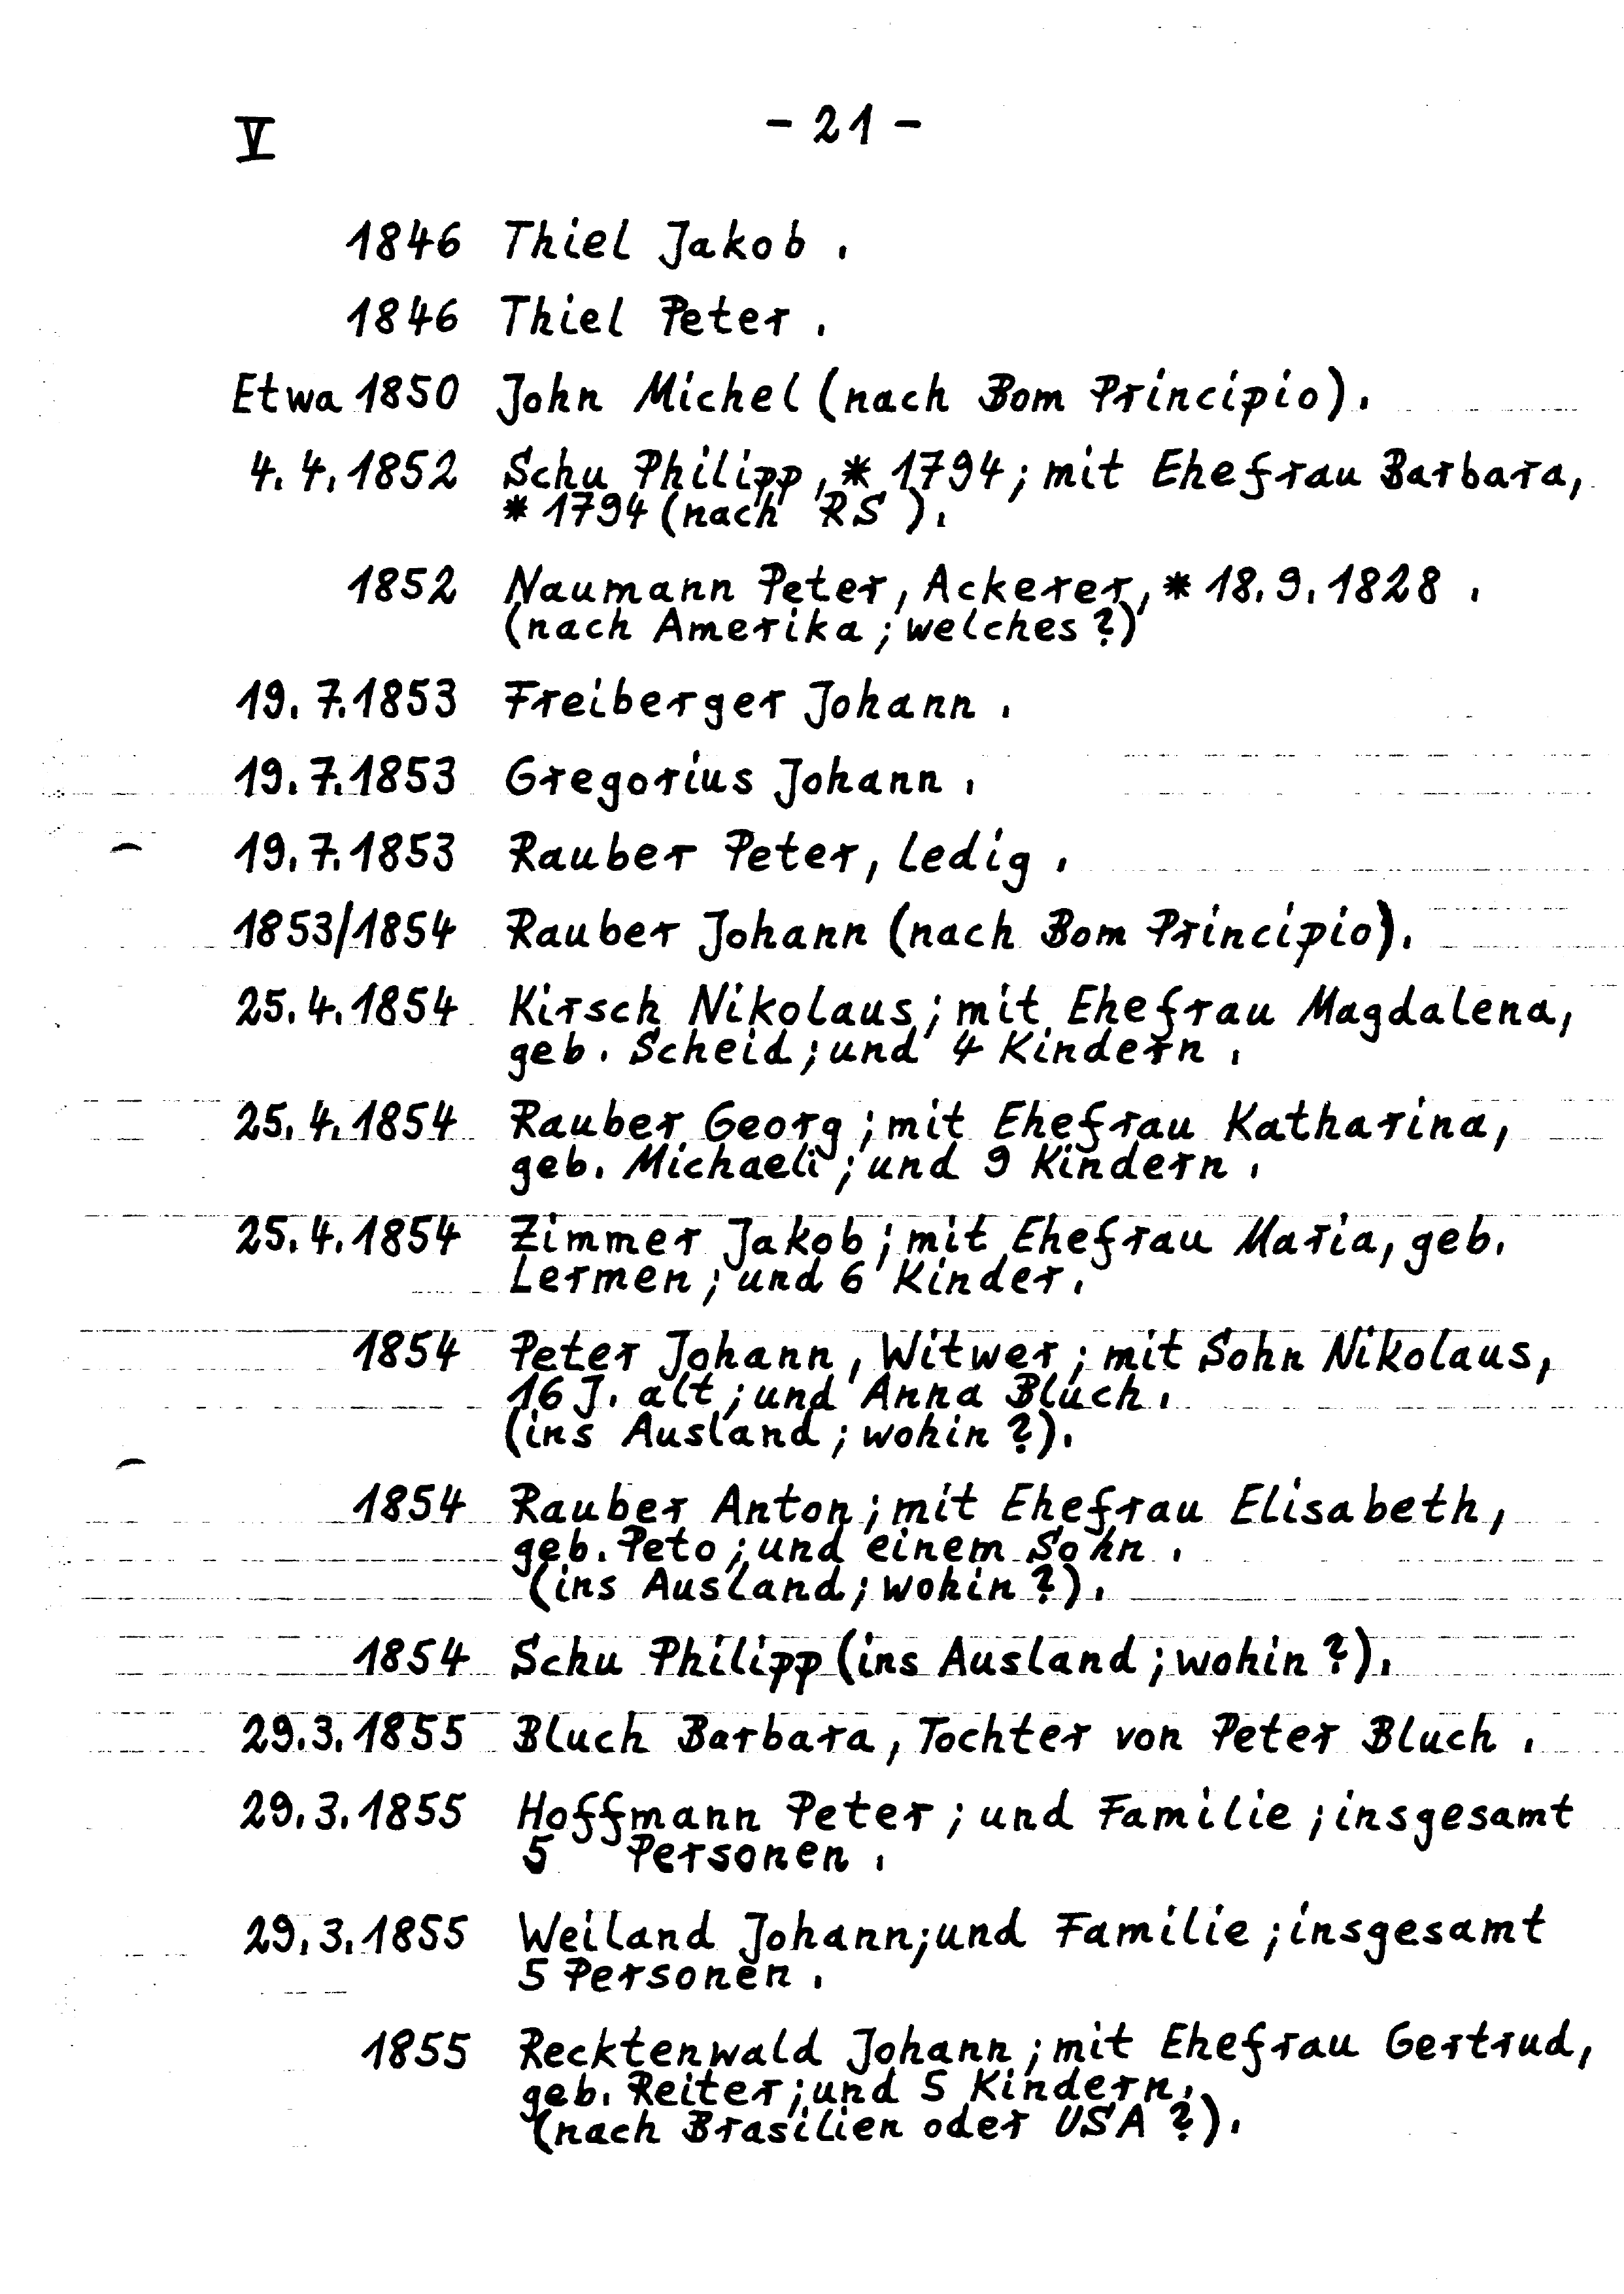 V - 21 -
1846 Thiel Jakob.
1846 Thiel Peter.
Etwa 1850 John Michel (nach Bom Principio).
4.4.1852 Schu Philipp, * 1794; mit Ehefrau Barbara,
* 1794 (nach RS).
1852 Naumann Peter, Ackerer, * 18.9.1828.
(nach Amerika; welches?)
19.7.1853 Freiberger Johann.
19.7.1853 Gregorius Johann.
19.7.1853 Rauber Peter, ledig.
1853/1854 Rauber Johann (nach Bom Principio).
25.4.1854 Kirsch Nikolaus; mit Ehefrau Magdalena,
geb. Scheid; und 4 Kindern.
25.4.1854 Rauber Georg; mit Ehefrau Katharina,
geb. Michaeli; und 9 Kindern.
25.4.1854 Zimmer Jakob; mit Ehefrau Maria, geb.
Lermen; und 6 Kinder.
1854 Peter Johann, Witwer; mit Sohn Nikolaus,
16 J. alt; und Anna Bluch.
(ins Ausland; wohin?).
1854 Rauber Anton; mit Ehefrau Elisabeth,
geb. Peto; und einem Sohn.
(ins Ausland; wohin?).
1854 Schu Philipp (ins Ausland; wohin?).
29.3.1855 Bluch Barbara, Tochter von Peter Bluch.
29.3.1855 Hoffmann Peter; und Familie; insgesamt
5 Personen.
29.3.1855 Weiland Johann; und Familie; insgesamt
5 Personen.
1855 Recktenwald Johann; mit Ehefrau Gertrud,
geb. Reiter; und 5 Kindern.
(nach Brasilien oder USA?).